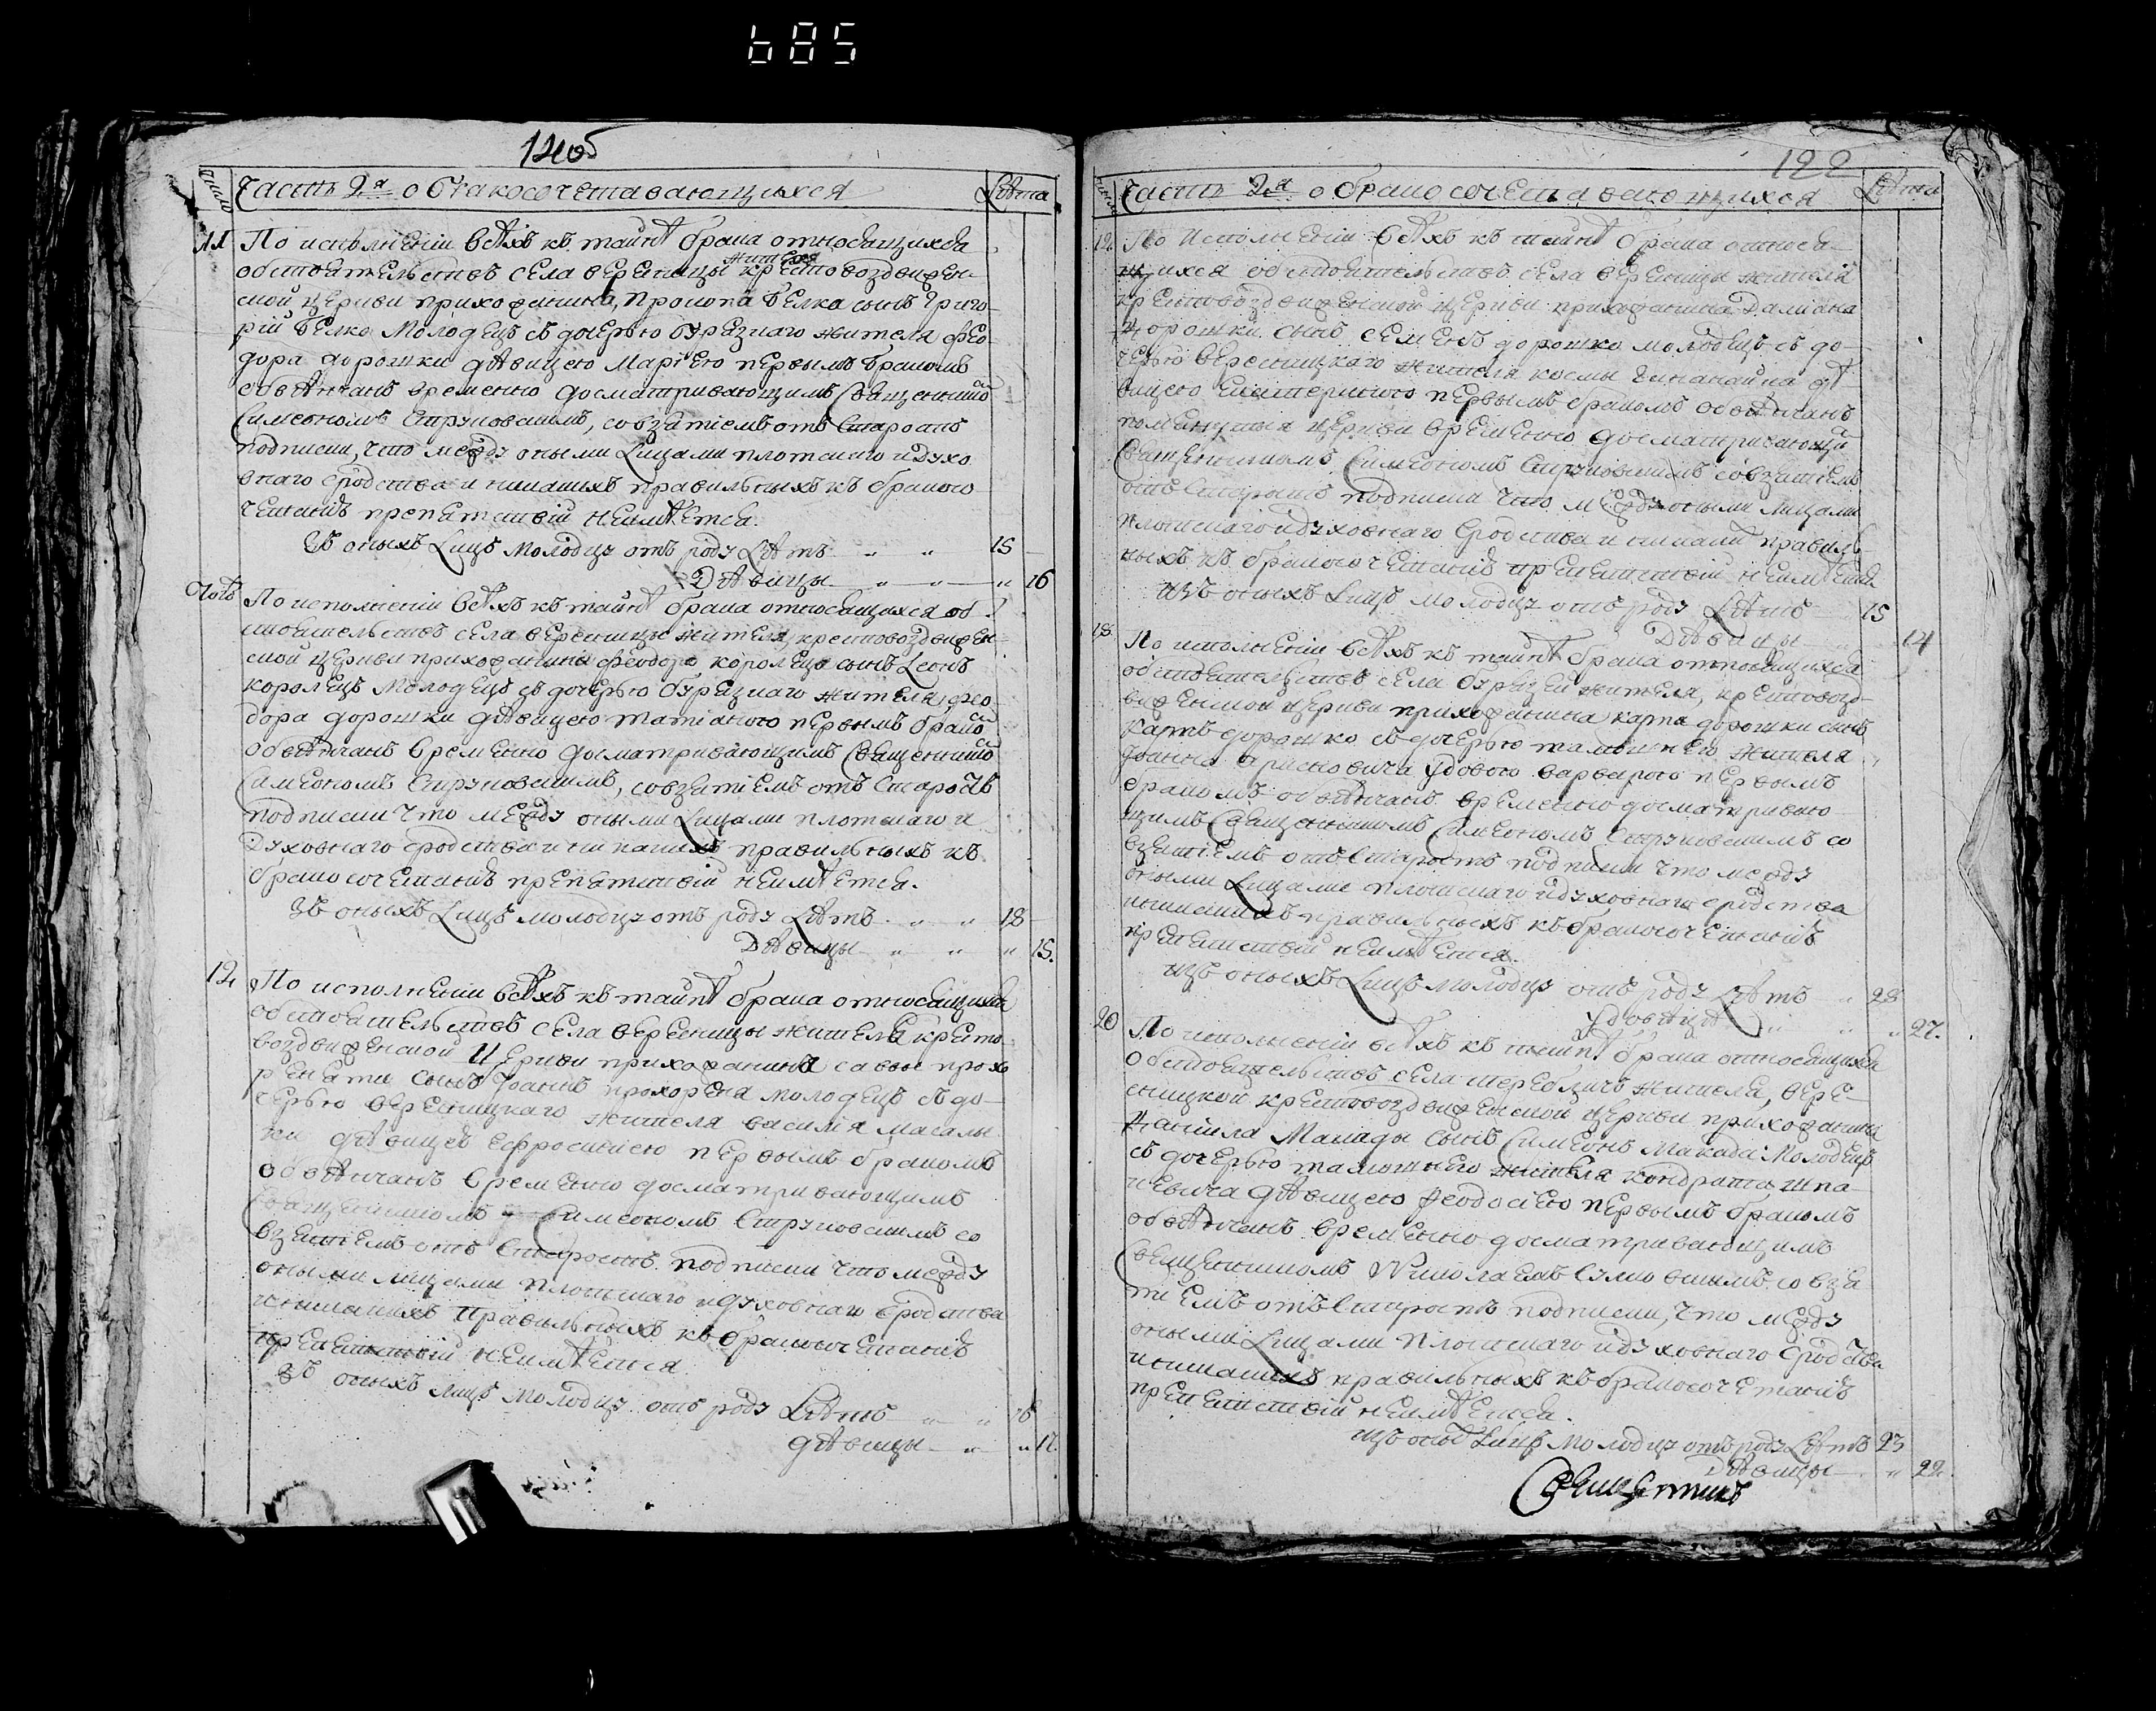 685
Число
Часть 2я о бракосочетавающихся
Лѣта
11
По исполненіи всѣхъ къ тайнѣ брака относящихся
жителя
обстоятельствъ села Верешицы крестовоздвижен-
ской церкви прихожанина, Прокопа Белка сынъ Григо-
рій Белко молодецъ съ дочерью Буразкаго жителя Фео-
дора Дорошки дѣвицею Маріею первымъ бракомъ
обвѣнчанъ временно досматривающимъ Священнико
Симеономъ Струковскимъ, со взятіемъ отъ Старостъ
подписки, что между оными Лицами плотскаго и духо
внаго сродства и никакихъ правильныхъ къ бракосо
четанію препятствій неимѣется.
Зъ оныхъ Лицъ молодцу отъ роду Лѣтъ " " 15
Дѣвицы " " " 16
По исполненіи всѣхъ къ тайнѣ брака относящихся об
стоятельствъ села Верешицы жителя, крестовоздвижен-
ской церкви прихожанина Феодора Королца сынъ Леонъ
Королецъ молодецъ съ дочерью Буразкаго жителя Фео-
дора Дорошки дѣвицею Татіаною первымъ брако
обвѣнчанъ временно досматривающимъ Священнико
Симеономъ Струковскимъ, со взятіемъ отъ Старостъ
подписки что между оными Лицами плотскаго и
Духовнаго сродства и никакихъ правильныхъ къ
бракосочетанію препятствій неимѣется.
Зъ оныхъ Лицъ молодцу отъ роду Лѣтъ " " 18
Дѣвицы " " " 15.
12
По исполненіи всѣхъ къ тайнѣ брака относящихся
обстоятельствъ села Верешицы жителя кресто
воздвиженской Церкви прихожанина Савы Прохо
сынъ Іоаннъ молодецъ съ до-
черью Верешицкаго жителя Василія
дѣвицею Ефросиніею первымъ бракомъ
обвѣнчанъ временно досматривающимъ
Священникомъ Симеономъ Струковскимъ со
взятіемъ отъ Старостъ подписки что между
оными лицами плотскаго и духовнаго сродства
и никакихъ правильныхъ къ бракосочетанію
препятствій неимѣется
Зъ оныхъ лицъ молодцу отъ роду Лѣтъ " " 
дѣвицы " "
122
Часть 2я о бракосочетавающихся
Лѣта
12.
По исполненіи всѣхъ къ тайнѣ брака относя-
щихся обстоятельствъ села Верешицы жителя
крестовоздвиженской церкви прихожанина Даміана
Дорошки сынъ Семенъ Дорошко молодецъ съ до-
черью Верешицкаго жителя Космы дѣ-
вицею Екатериною первымъ бракомъ обвѣнчанъ
помянутыя церкви временно досматривающи
Священникомъ Симеономъ Струковскимъ со взятіемъ
отъ Старостъ подписки что между оными лицами
плотскаго и духовнаго сродства и никаки правиль
ныхъ къ бракосочетанію препятствій неимѣется
Изъ оныхъ Лицъ молодцу отъ роду Лѣтъ 15
Дѣвицы 14
18.
По исполненіи всѣхъ къ тайнѣ брака относящихся
обстоятельствъ села Буразей жителя, крестовоз-
движенской церкви прихожанина Карпа Дорошки сынъ
Карпъ Дорошко съ дочерью тамошнего жителя
Іоанна удовою Варварою первымъ
бракомъ обвѣнчанъ временно досматриваю
щимъ Священникомъ Симеономъ Струковскимъ со
взятіемъ отъ Старостъ подписки что между
оными Лицами плотскаго и духовнаго сродства
и никакихъ правильныхъ къ бракосочетанію
препятствій неимѣется.
Изъ оныхъ Лицъ молодцу отъ роду Лѣтъ " 28
Удовицы " " " 27.
20
По исполненіи всѣхъ къ тайнѣ брака относящихся
обстоятельствъ села Теребличъ жителя, Вере-
сницкой крестовоздвиженской церкви прихожанина
Даніила Макады сынъ Симеонъ Макада молодецъ
съ дочерью тамошнего жителя Кондрата Шпа-
чевича дѣвицею Феодосіею первымъ бракомъ
обвѣнчанъ временно досматривающимъ
Священникомъ Николаемъ со взя
тіемъ отъ Старостъ подписки, что между
оными Лицами плотскаго и духовнаго сродства
и никакихъ правильныхъ къ бракосочетанію
препятствій неимѣется.
Изъ оны Лицъ молодцу отъ роду Лѣтъ 23
Дѣвицы " 22.
Священникъ